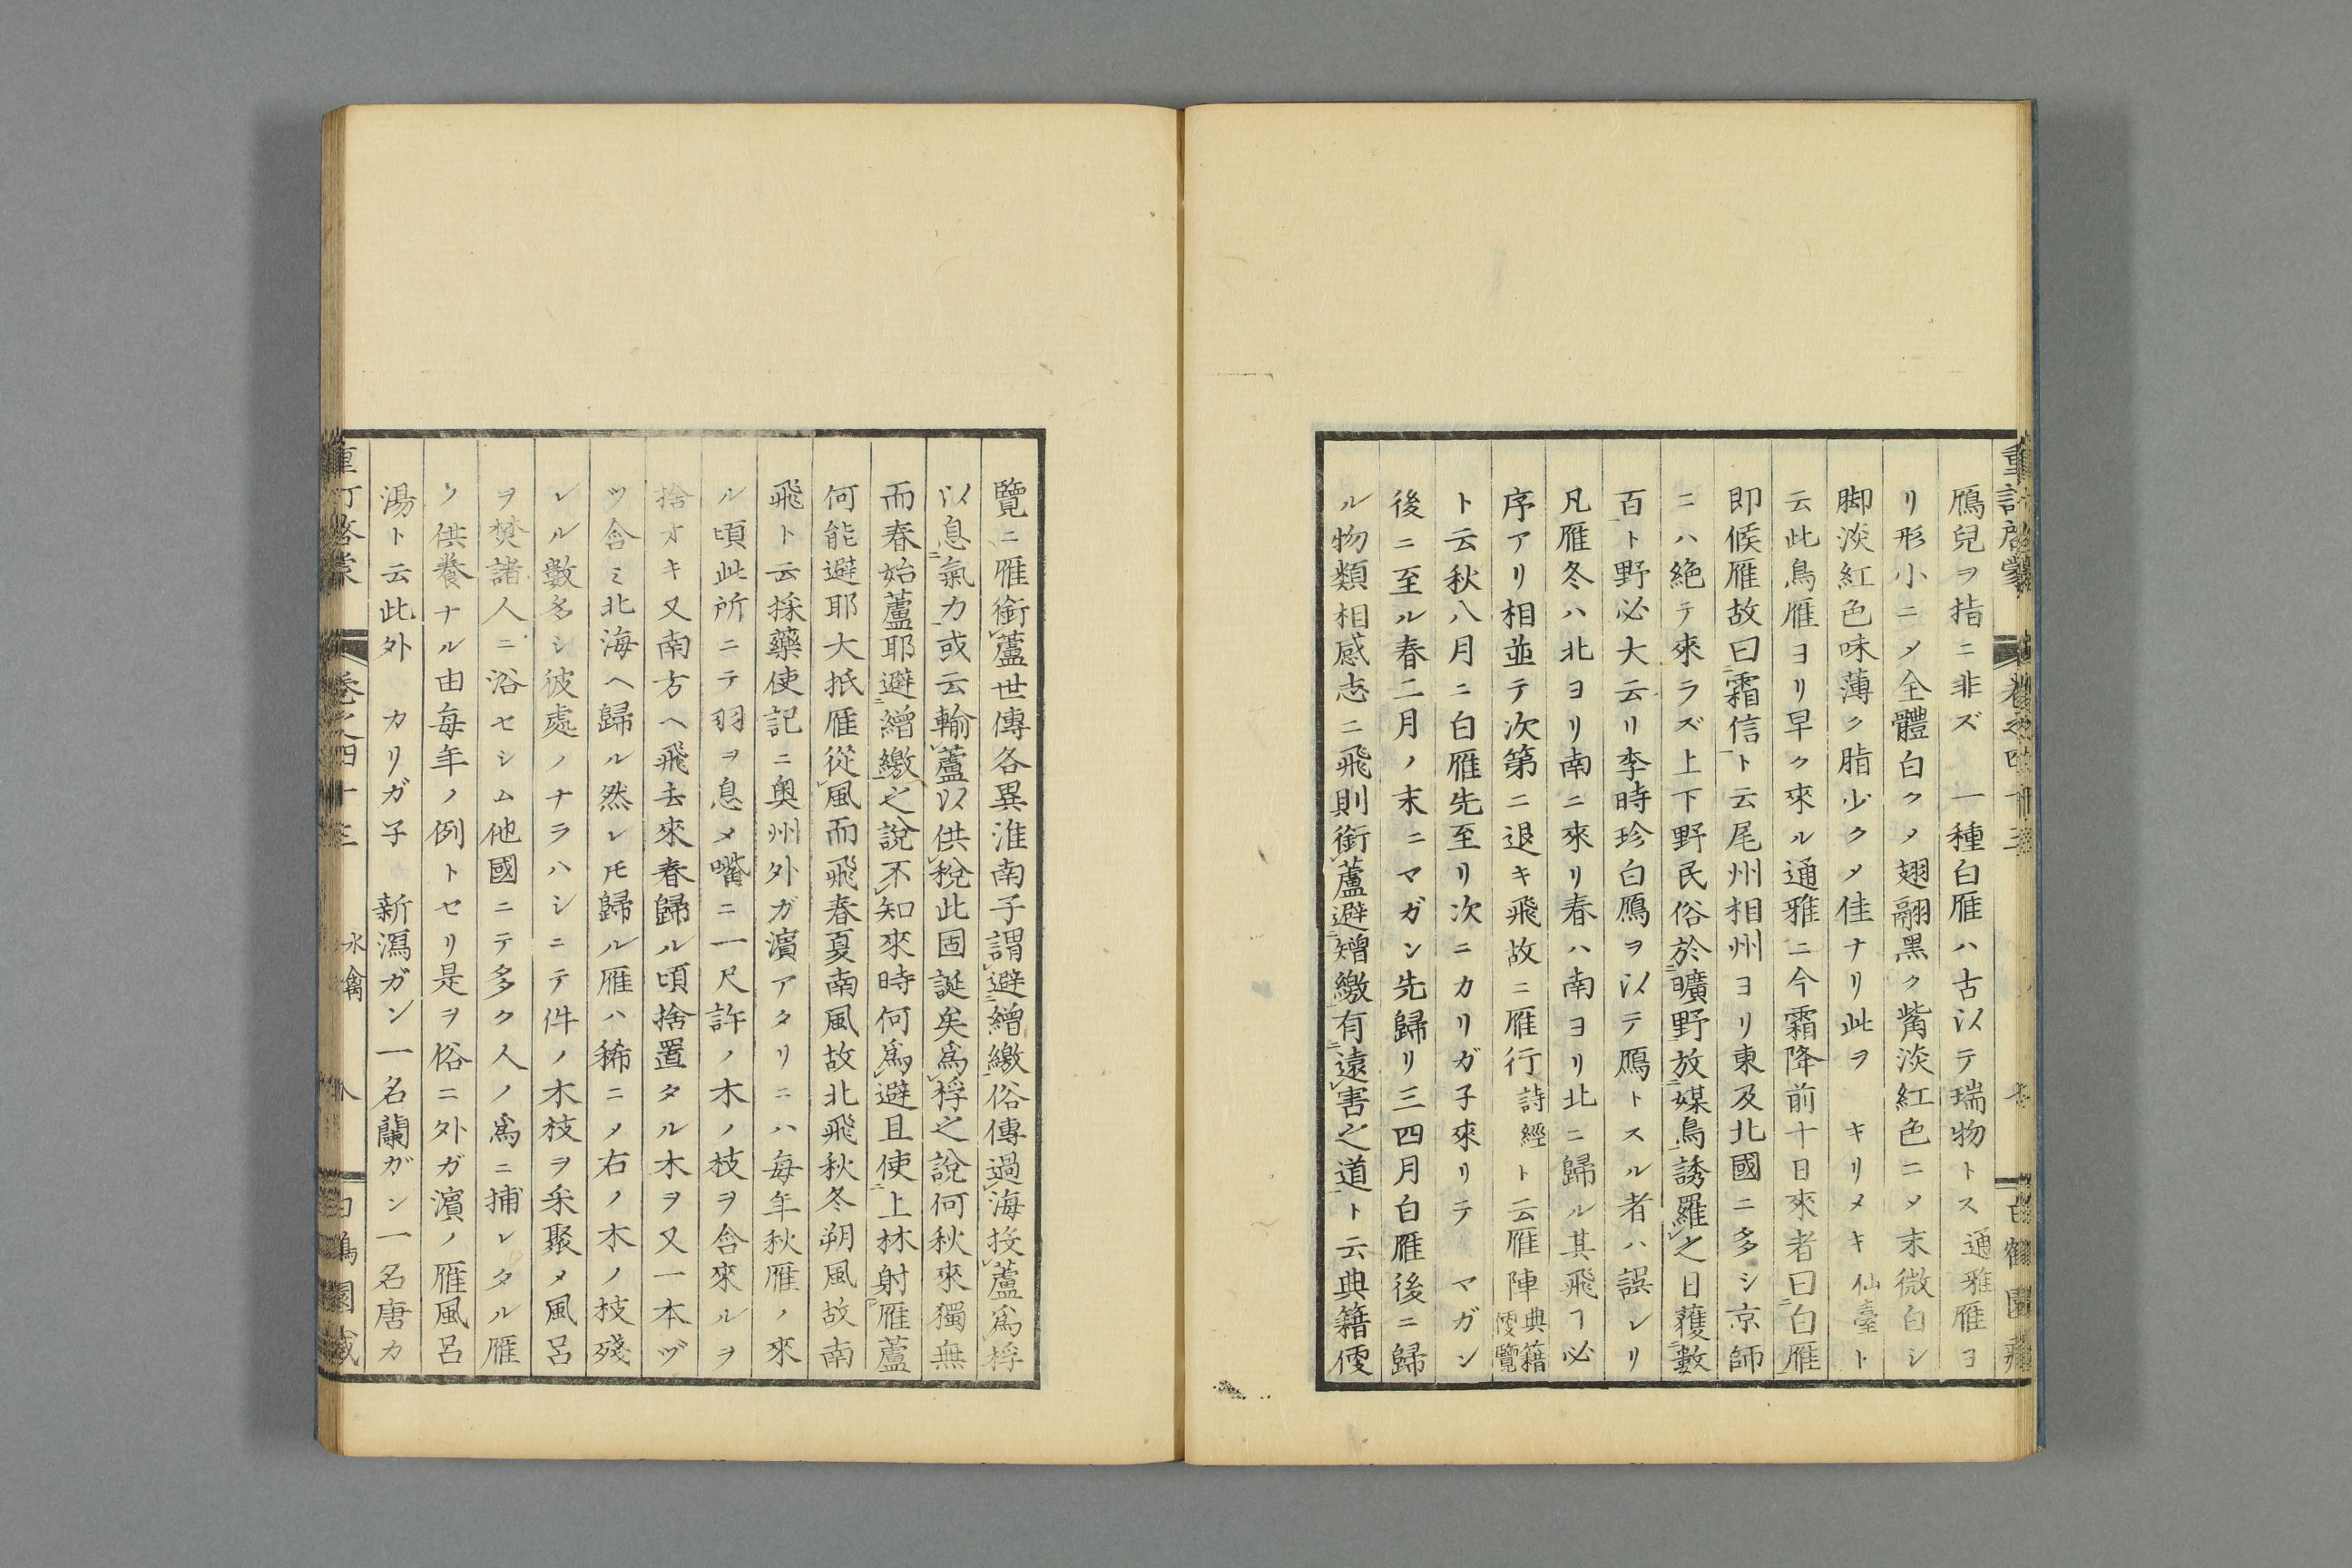 鴈兒ヲ指ニ非ズ 一種白雁ハ古以テ瑞物トス 通雅雁ヨ
リ形小ニメ全體白クメ翅翮黑ク觜淡紅色ニメ末微白シ
脚淡紅色味薄ク脂少クメ佳ナリ此ヲ キリメキ 仙臺ト
云此鳥雁ヨリ早ク來ル通雅ニ今霜降前十日來者曰白雁
即候雁故曰霜信ト云尾州相州ヨリ東及北國ニ多シ京師
ニハ絶テ來ラズ上下野民俗於曠野放媒鳥誘羅之日獲數
百ト野必大云リ李時珍白鴈ヲ以テ鴈トスル者ハ誤レリ
凡雁冬ハ北ヨリ南ニ來リ春ハ南ヨリ北ニ歸ル其飛ヿ必
序アリ相並テ次第ニ退キ飛故ニ雁行 詩經ト云雁陣 典籍便覽
ト云秋八月ニ白雁先至リ次ニカリガ子來リテ マガン
後ニ至ル春二月ノ末ニマガン先歸リ三四月白雁後ニ歸
ル物類相感志ニ飛則銜蘆避矰繳有遠害之道ト云典籍便
覽ニ雁銜蘆世傳各異淮南子謂避繒繳俗傳過海投蘆爲桴
以息氣力或云輸蘆以供稅此固誕矣爲桴之說何秋來獨無
而春始蘆耶避繒繳之說不知來時何爲避且使上林射雁蘆
何能避耶大抵雁從風而飛春夏南風故北飛秋冬朔風故南
飛ト云採藥使記ニ奥州外ガ濵アタリニハ毎年秋雁ノ來
ル頃此所ニテ羽ヲ息メ嘴ニ一尺許ノ木ノ枝ヲ含來ルヲ
捨オキ又南方ヘ飛去來春歸ル頃捨置タル木ヲ又一本ヅ
ツ含ミ北海ヘ歸ル然レ𪜈歸ル雁ハ稀ニメ右ノ木ノ枝殘
レル數多シ彼處ノナラハシニテ件ノ木枝ヲ釆聚メ風呂
ヲ焚諸人ニ浴セシム他國ニテ多ク人ノ爲ニ捕レタル雁
ノ供養ナル由毎年ノ例トセリ是ヲ俗ニ外ガ濵ノ雁風呂
湯ト云此外 カリガ子 新瀉ガン一名蘭ガン一名唐カ
卷之四十三 水禽 八